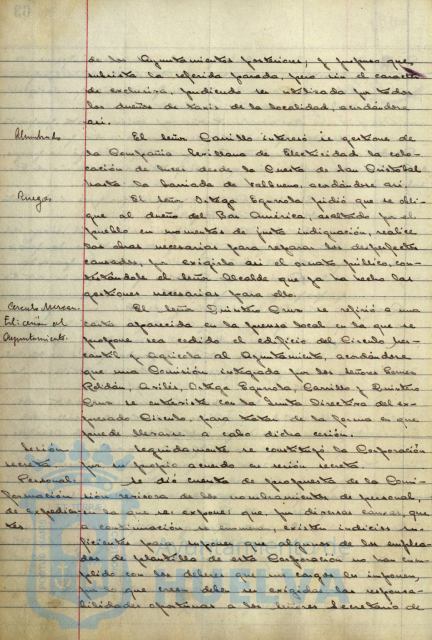 de los Ayuntamientos posteriores, y propuso que
subsista la referida parada, pero sin el caracter
de exclusiva, pudiendo ser utilizada por todos
los dueños de taxis de la localidad, acordándose
asi.
Alumbrado
El señor Carrillo interesó se gestione de
la Compañia Sevillana de Electricidad la colo-
cación de luces desde la Cuesta de San Cristobal
hasta la barriada de Viaplana, acordándose asi.
Ruegos
El señor Ortega Esquerola pidió que se obli-
gue al dueño del Bar América, asaltado por el
pueblo en momentos de justa indignación, realice
las obras necesarias para reparar los desperfectos
causados, por exigirlo asi el ornato público, con-
testándole el señor Alcalde que ya ha hecho las
gestiones necesarias para ello.
Circulo Mercan.
Edificación al
Ayuntamiento.
El señor Quintero Cruz se refirió a una
carta aparecida en la prensa local en la que se
propone sea cedido el edificio del Circulo Mer-
cantil y Agricola al Ayuntamiento, acordándose
que una Comisión integrada por los señores Gomez
Roldán, Ortega Esquerola, Carrillo y Quintero
Cruz se entreviste con la Junta Directiva del ex-
presado Circulo, para tratar de la forma en que
puede llevarse a cabo dicha cesión.
Sesión
secreta
Seguidamente se constituyó la Corporación
por su propio acuerdo en sesión secreta.
Personal:
formación
de expedien-
tes.
Se dió cuenta de propuesta de la Comi-
sión revisora de los nombramientos de personal,
en la que se expone: que, por diversas causas, que
a continuación se enumeran, existen indicios su-
ficientes para suponer que algunos de los emplea-
dos de plantilla de esta Corporación no han cum-
plido con los deberes que sus cargos les imponen,
por lo que creen debe ser exigidas las responsa-
bilidades oportunas a los señores Secretario de
HUELVA